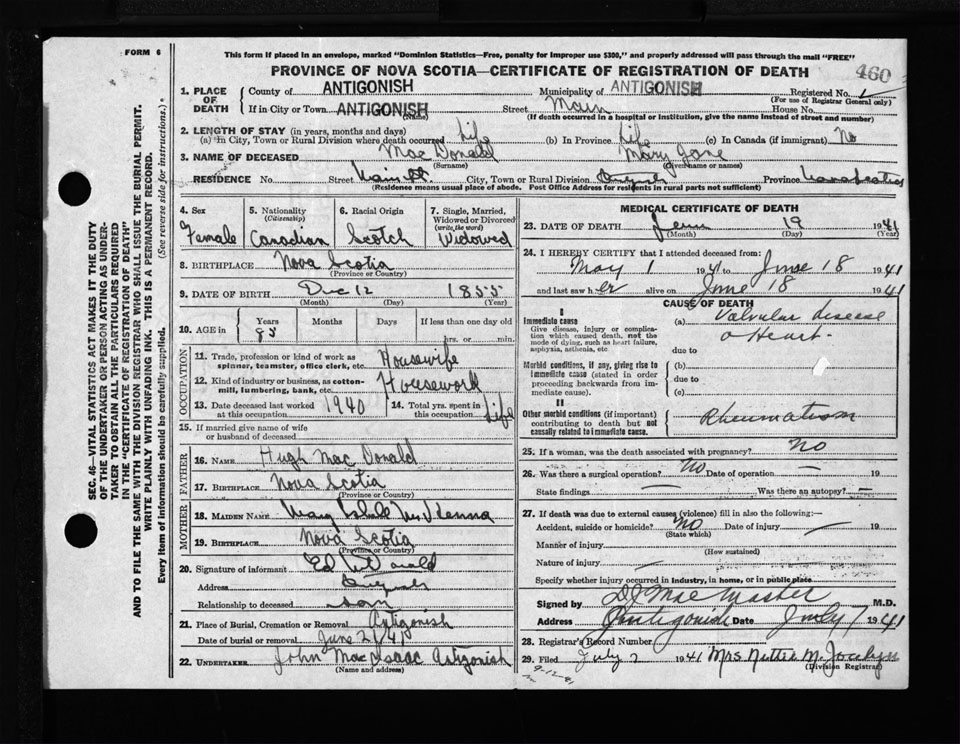 FORM 6
This form if placed in an envelope, marked "Dominion Statistics—Free, penalty for improper use $300," and properly addressed will pass through the mail "FREE"
PROVINCE OF NOVA SCOTIA—CERTIFICATE OF REGISTRATION OF DEATH
460
1. PLACE OF DEATH
County of ANTIGONISH Municipality of ANTIGONISH Registered No.
(For use of Registrar General only)
If in City or Town ANTIGONISH Street Main House No.
(Name) (If death occurred in a hospital or institution, give the name instead of street and number)
2. LENGTH OF STAY (in years, months and days)
(a) In City, Town or Rural Division where death occurred Life (b) In Province Life (c) In Canada (if immigrant) No
3. NAME OF DECEASED MacDonald Mary Jane
(Surname) (Given name or names)
RESIDENCE No. Street Main St. City, Town or Rural Division Province Nova Scotia
(Residence means usual place of abode. Post Office Address for residents in rural parts not sufficient)
4. Sex Female
5. Nationality (Citizenship) Canadian
6. Racial Origin Scotch
7. Single, Married, Widowed or Divorced (write the word) Widowed
8. BIRTHPLACE Nova Scotia
(Province or Country)
9. DATE OF BIRTH Dec 12 1855
(Month) (Day) (Year)
10. AGE in Years 85 Months Days If less than one day old
hrs. or min.
OCCUPATION
11. Trade, profession or kind of work as spinner, teamster, office clerk, etc. Housewife
12. Kind of industry or business, as cotton-mill, lumbering, bank, etc. Housework
13. Date deceased last worked at this occupation 1940
14. Total yrs. spent in this occupation Life
15. If married give name of wife or husband of deceased
FATHER
16. NAME Hugh MacDonald
17. BIRTHPLACE Nova Scotia
(Province or Country)
MOTHER
18. MAIDEN NAME Mary
19. BIRTHPLACE Nova Scotia
(Province or Country)
20. Signature of informant Ed
Address
Relationship to deceased son
21. Place of Burial, Cremation or Removal Antigonish
Date of burial or removal June 21/41
22. UNDERTAKER John MacIsaac Antigonish
(Name and address)
MEDICAL CERTIFICATE OF DEATH
23. DATE OF DEATH 19 1941
(Month) (Day) (Year)
24. I HEREBY CERTIFY that I attended deceased from:
May 1 1941 to June 18 1941
and last saw her alive on June 18 1941
CAUSE OF DEATH
I
Immediate cause
Give disease, injury or complication which caused death, not the mode of dying, such as heart failure, asphyxia, asthenia, etc.
(a) Valvular disease
Heart
due to
Morbid conditions, if any, giving rise to immediate cause (stated in order proceeding backwards from immediate).
(b)
due to
(c)
II
Other morbid conditions (if important) contributing to death but not causally related to immediate cause.
Rheumatism
25. If a woman, was the death associated with pregnancy? No
26. Was there a surgical operation? No Date of operation — 19
State findings — Was there an autopsy? —
27. If death was due to external causes (violence) fill in also the following:—
Accident, suicide or homicide? No Date of injury — 19
(State which)
Manner of injury
(How sustained)
Nature of injury —
Specify whether injury occurred in industry, in home, or in public place
Signed by MacMaster M.D.
Address Antigonish Date July 7 1941
28. Registrar's Record Number
29. Filed July 7 1941 Mrs
(Division Registrar)
9-12-41
SEC. 46—VITAL STATISTICS ACT MAKES IT THE DUTY
OF THE UNDERTAKER OR PERSON ACTING AS UNDER-
TAKER TO OBTAIN ALL THE PARTICULARS REQUIRED
IN THE "CERTIFICATE OF REGISTRATION OF DEATH"
AND TO FILE THE SAME WITH THE DIVISION REGISTRAR WHO SHALL ISSUE THE BURIAL PERMIT.
WRITE PLAINLY WITH UNFADING INK. THIS IS A PERMANENT RECORD.
Every item of information should be carefully supplied. (See reverse side for instructions).